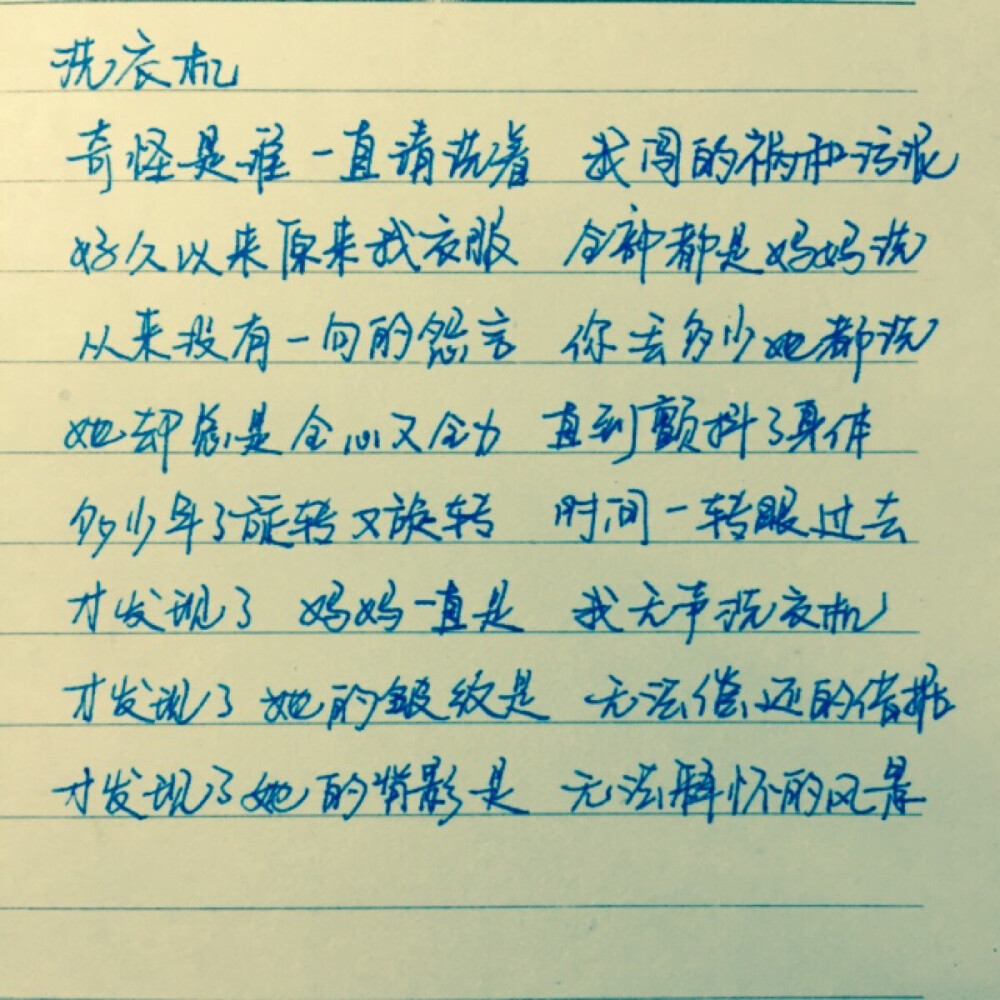 洗衣机
奇怪是谁一直清洗着 我闯的祸和污泥
好久以来原来我衣服 全部都是妈妈洗
从来没有一句的怨言 你丢多少她都洗
她却总是全心又全力 直到颤抖了身体
多少年了旋转又旋转 时间一转眼过去
才发现了 妈妈一直是 我无声洗衣机
才发现了 她的皱纹是 无法偿还的借据
才发现了她的背影是 无法释怀的风景